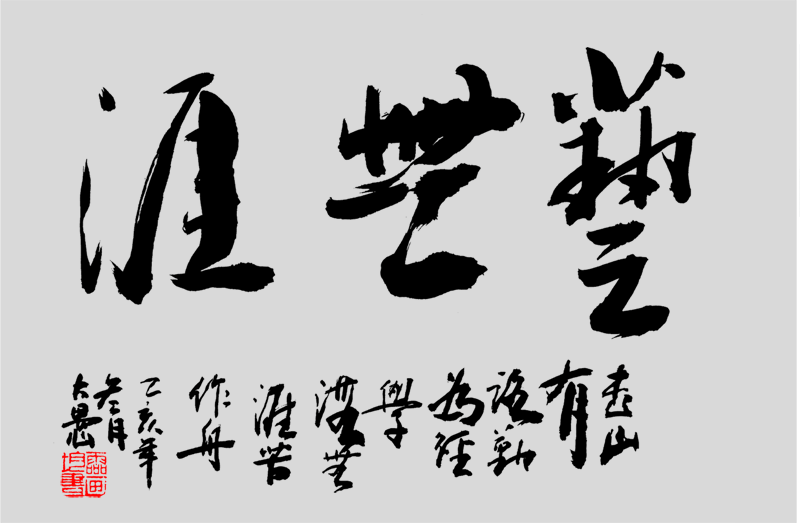 藝無涯
書山
有
路勤
為徑
學
海無
涯苦
作舟
乙亥年
月
大